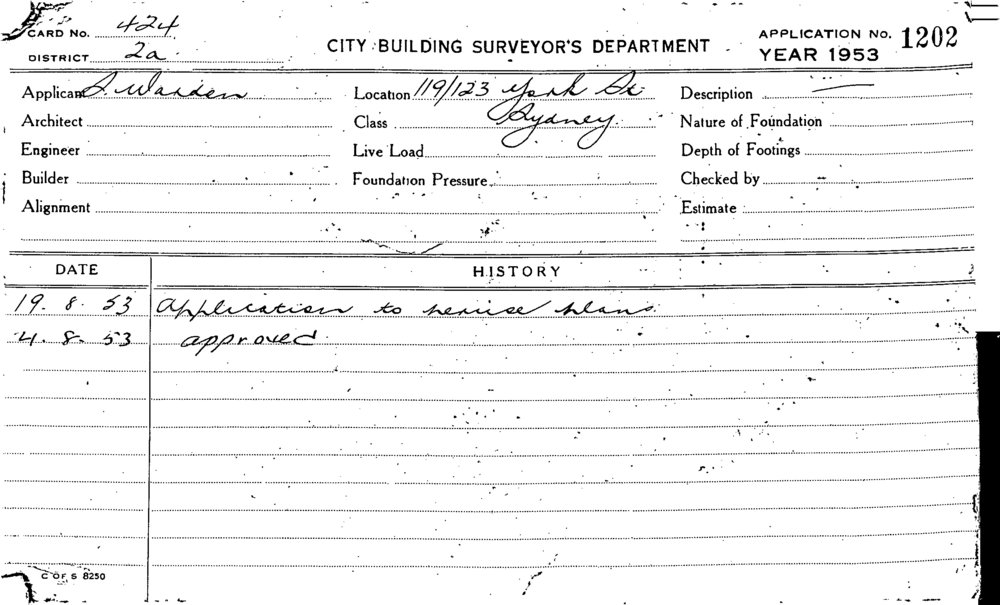 CARD No. 424
DISTRICT 2a
CITY BUILDING SURVEYOR'S DEPARTMENT
APPLICATION No. 1202
YEAR 1953
Applicant S. Warden Location 119/123 York St. Description
Architect Class Sydney. Nature of Foundation
Engineer Live Load Depth of Footings
Builder Foundation Pressure Checked by
Alignment Estimate
DATE HISTORY
19. 8. 53 Application to peruse plans.
4. 8. 53 approved.
C OF S 8250